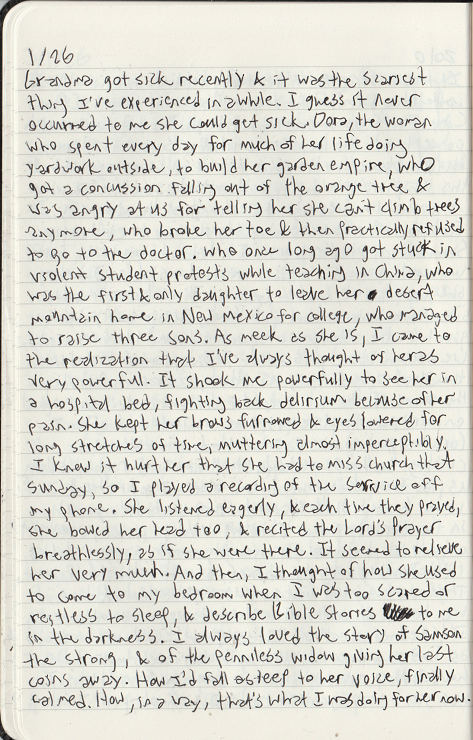 1/26
Grandma got sick recently & it was the scariest
thing I've experienced in awhile. I guess it never
occurred to me she could get sick. Dora, the woman
who spent every day for much of her life doing
yardwork outside, to build her garden empire, who
got a concussion falling out of the orange tree &
was angry at us for telling her she can't climb trees
anymore, who broke her toe & then practically refused
to go to the doctor. Who once long ago got stuck in
violent student protests while teaching in China, who
was the first & only daughter to leave her desert
mountain home in New Mexico for college, who managed
to raise three sons. As meek as she is, I came to
the realization that I've always thought of her as
very powerful. It shook me powerfully to see her in
a hospital bed, fighting back delirium because of her
pain. She kept her brows furrowed & eyes lowered for
long stretches of time, muttering almost imperceptibly.
I knew it hurt her that she had to miss church that
Sunday, so I played a recording of the service off
my phone. She listened eagerly, & each time they prayed,
she bowed her head too, & recited the Lord's Prayer
breathlessly, as if she were there. It seemed to relieve
her very much. And then, I thought of how she used
to come to my bedroom when I was too scared or
restless to sleep, & describe Bible stories to me
in the darkness. I always loved the story of Samson
the strong, & of the penniless widow giving her last
coins away. How I'd fall asleep to her voice, finally
calmed. How, in a way, that's what I was doing for her now.